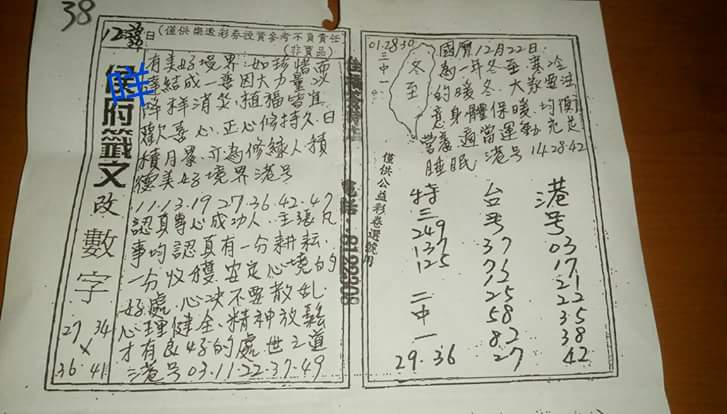 38
12月
日(僅供樂透彩券證資參考不負責任
(非賣品)
侯府籤文
改數字
27 34
×
36 41
有美好境界.如珍惜而
結成一善因大力量以
降祥消災.植福皆宜
歡喜心.正心修持久日
積月累.亦為修緣人積
德美好境界港號
11.13.19.27.36.42.47
認真專心成功人.主張凡
事均認真有一分耕耘.
一分收獲.安定心境的
好處.心決不要散亂.
心理健全.精神放鬆
才有良好的處世之道
港号03.11.22.37.49
電話:6122308
僅供公益彩卷選號用
01.28.30
三中一
冬至
國曆12月22日.
為一年冬至.寒冷
的暖冬.大家要注
意身體保暖.均衡
營養.適當運動.充足
睡眠 港号14.28.42
特三
249
137
125
二中一
29.36
台号
37
25
58
82
27
港号
03
17
21
22
35
38
42